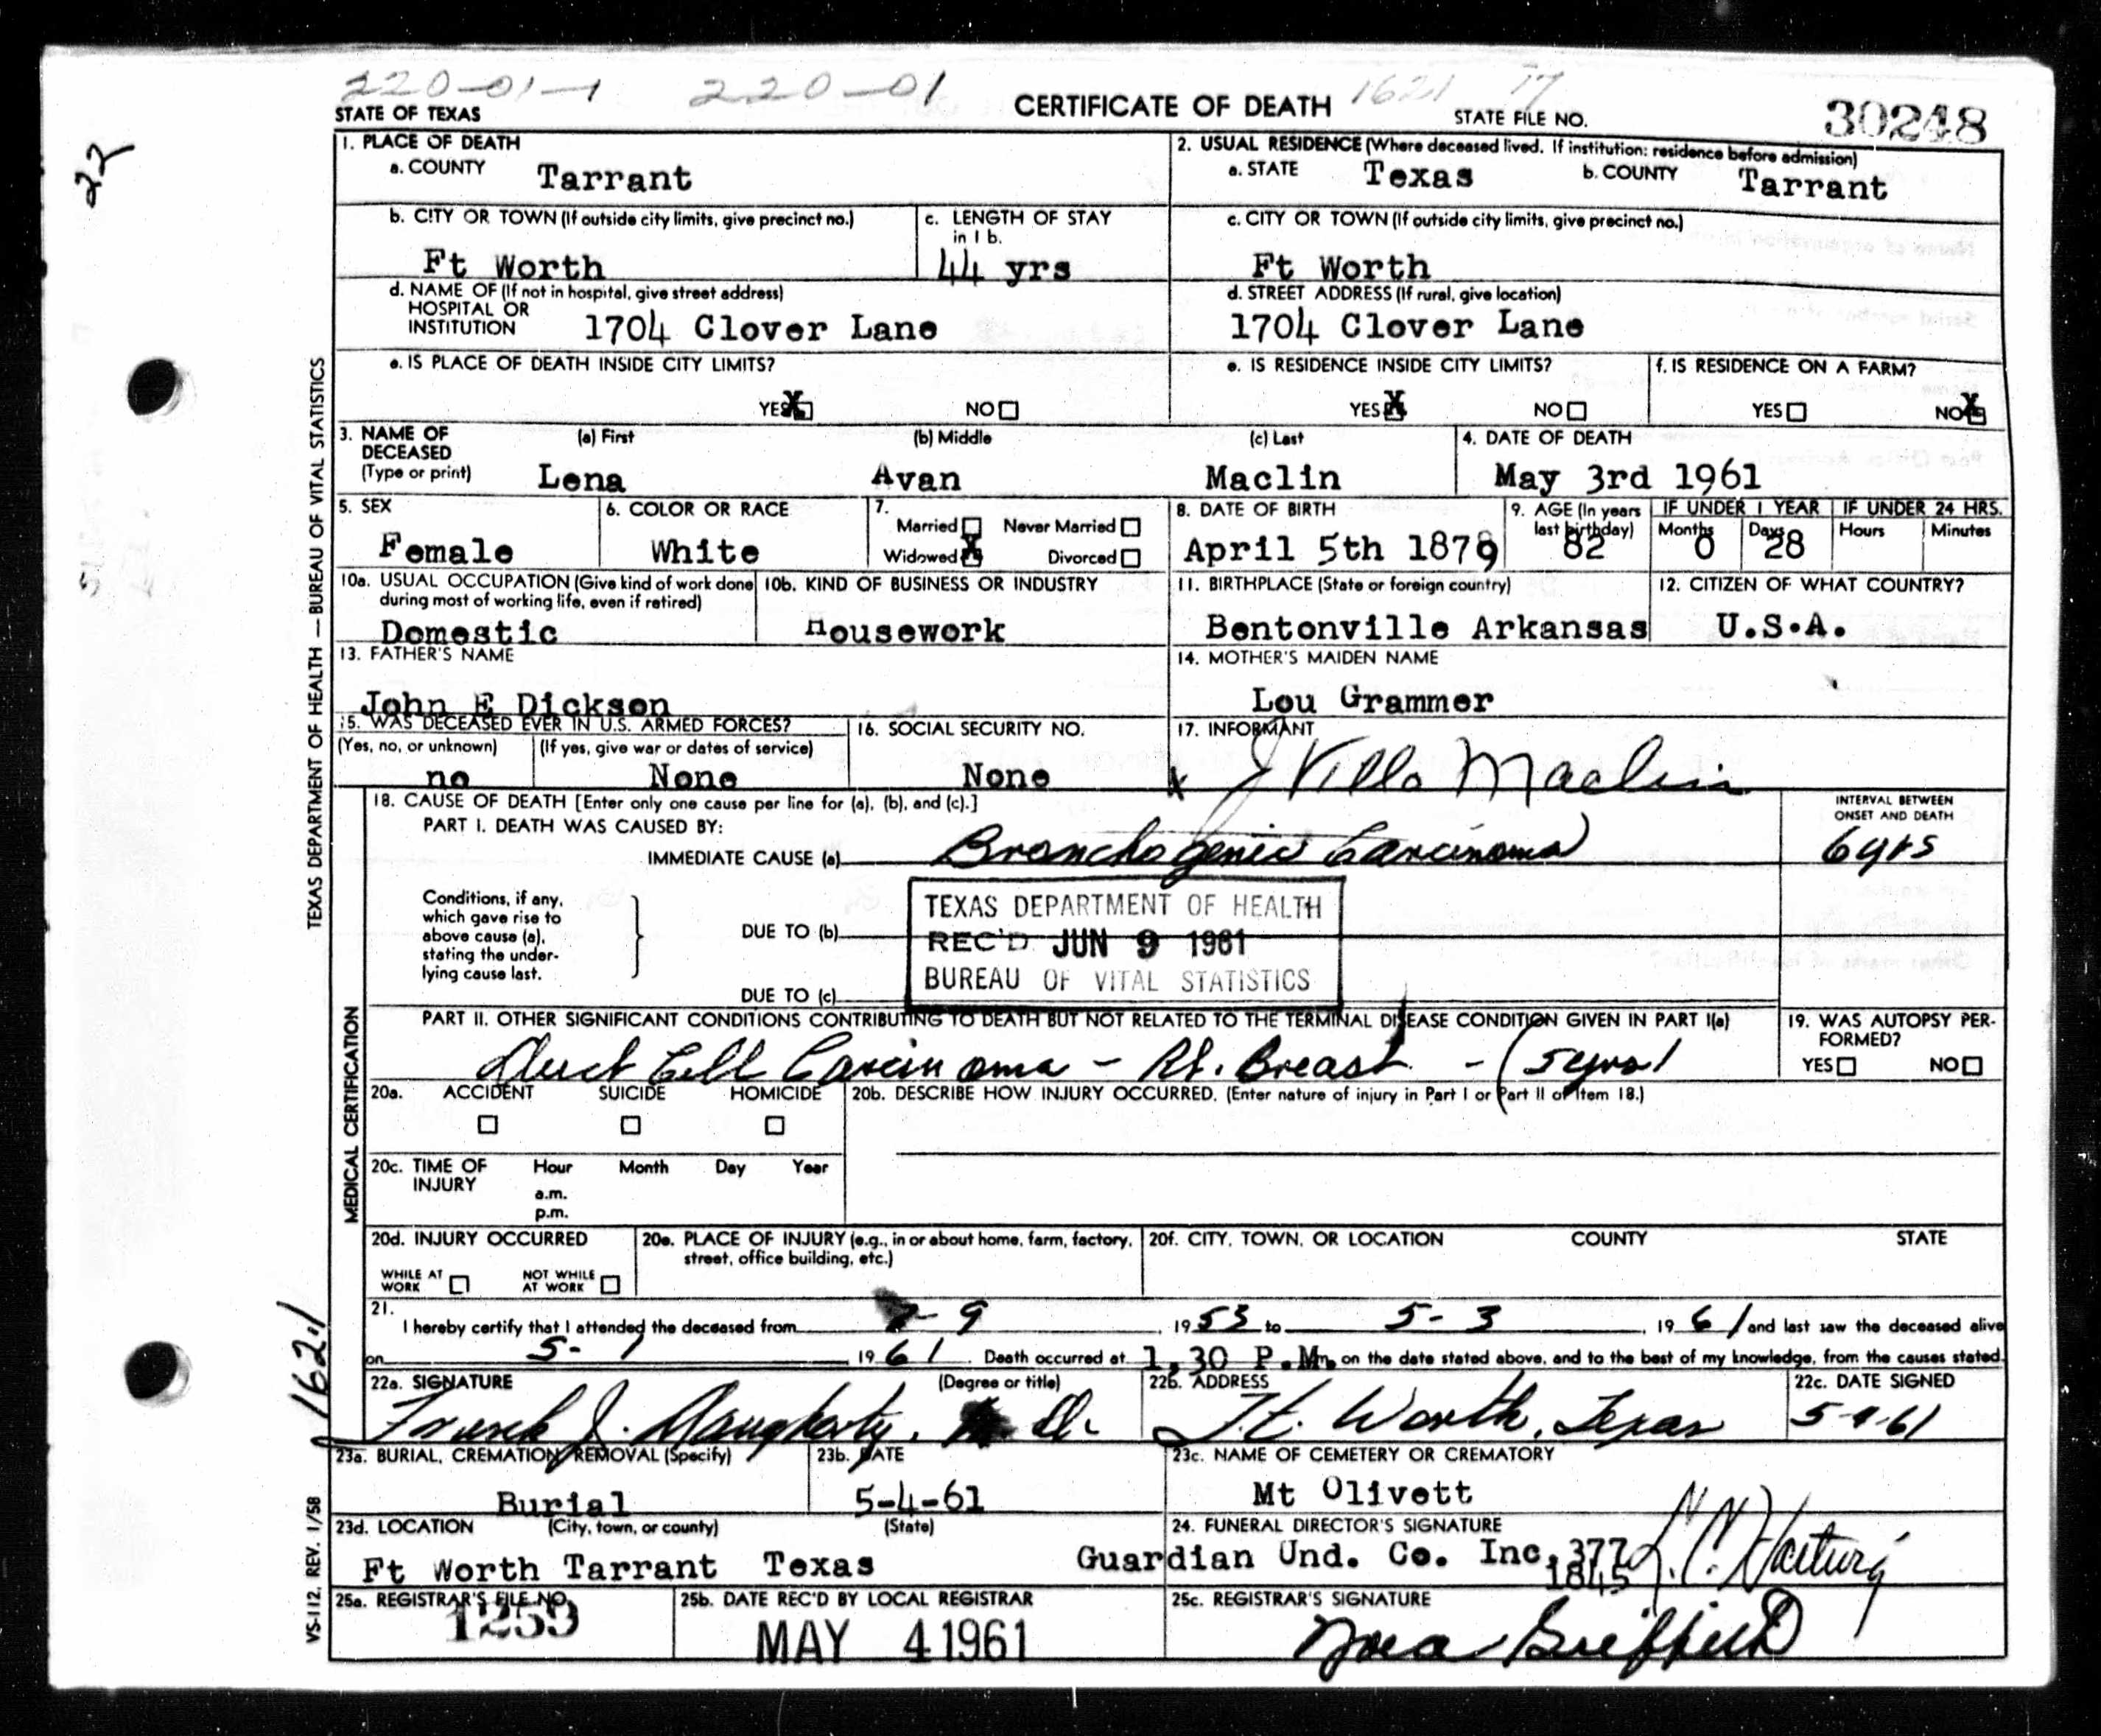 220-01-1 220-01 1621 77
STATE OF TEXAS CERTIFICATE OF DEATH STATE FILE NO. 30248
22
1. PLACE OF DEATH
a. COUNTY Tarrant
2. USUAL RESIDENCE (Where deceased lived. If institution: residence before admission)
a. STATE Texas b. COUNTY Tarrant
b. CITY OR TOWN (If outside city limits, give precinct no.)
Ft Worth
c. LENGTH OF STAY
in 1 b.
44 yrs
c. CITY OR TOWN (If outside city limits, give precinct no.)
Ft Worth
d. NAME OF (If not in hospital, give street address)
HOSPITAL OR
INSTITUTION 1704 Clover Lane
d. STREET ADDRESS (If rural, give location)
1704 Clover Lane
e. IS PLACE OF DEATH INSIDE CITY LIMITS?
YES X NO
e. IS RESIDENCE INSIDE CITY LIMITS?
YES X NO
f. IS RESIDENCE ON A FARM?
YES NO X
3. NAME OF
DECEASED
(Type or print)
(a) First (b) Middle (c) Last
Lena Avan Maclin
4. DATE OF DEATH
May 3rd 1961
5. SEX
Female
6. COLOR OR RACE
White
7.
Married Never Married
Widowed X Divorced
8. DATE OF BIRTH
April 5th 1879
9. AGE (In years
last birthday)
82
IF UNDER 1 YEAR
Months Days
0 28
IF UNDER 24 HRS.
Hours Minutes
10a. USUAL OCCUPATION (Give kind of work done
during most of working life, even if retired)
Domestic
10b. KIND OF BUSINESS OR INDUSTRY
Housework
11. BIRTHPLACE (State or foreign country)
Bentonville Arkansas
12. CITIZEN OF WHAT COUNTRY?
U.S.A.
13. FATHER'S NAME
John E Dickson
14. MOTHER'S MAIDEN NAME
Lou Grammer
15. WAS DECEASED EVER IN U.S. ARMED FORCES?
(Yes, no, or unknown) (If yes, give war or dates of service)
no None
16. SOCIAL SECURITY NO.
None
17. INFORMANT
x J Villo Maclin
18. CAUSE OF DEATH [Enter only one cause per line for (a), (b), and (c).]
PART I. DEATH WAS CAUSED BY:
IMMEDIATE CAUSE (a) Bronchogenic Carcinoma
INTERVAL BETWEEN
ONSET AND DEATH
6yrs
Conditions, if any,
which gave rise to
above cause (a),
stating the under-
lying cause last.
DUE TO (b)
DUE TO (c)
TEXAS DEPARTMENT OF HEALTH
REC'D JUN 9 1961
BUREAU OF VITAL STATISTICS
PART II. OTHER SIGNIFICANT CONDITIONS CONTRIBUTING TO DEATH BUT NOT RELATED TO THE TERMINAL DISEASE CONDITION GIVEN IN PART I(a)
Duct Cell Carcinoma - Rt. Breast - (5yrs)
19. WAS AUTOPSY PER-
FORMED?
YES NO
20a. ACCIDENT SUICIDE HOMICIDE
20b. DESCRIBE HOW INJURY OCCURRED. (Enter nature of injury in Part I or Part II of Item 18.)
20c. TIME OF
INJURY
Hour Month Day Year
a.m.
p.m.
20d. INJURY OCCURRED
WHILE AT
WORK
NOT WHILE
AT WORK
20e. PLACE OF INJURY (e.g., in or about home, farm, factory,
street, office building, etc.)
20f. CITY, TOWN, OR LOCATION COUNTY STATE
21.
I hereby certify that I attended the deceased from -9, 1953 to 5-3, 1961 and last saw the deceased alive
on 5-1 1961. Death occurred at 1,30 P.M. m, on the date stated above, and to the best of my knowledge, from the causes stated.
22a. SIGNATURE (Degree or title)
Frank J. Daugherty, M.D.
22b. ADDRESS
Ft. Worth, Texas
22c. DATE SIGNED
23a. BURIAL, CREMATION, REMOVAL (Specify)
Burial
23b. DATE
5-4-61
23c. NAME OF CEMETERY OR CREMATORY
Mt Olivett
23d. LOCATION (City, town, or county) (State)
Ft Worth Tarrant Texas
24. FUNERAL DIRECTOR'S SIGNATURE
Guardian Und. Co. Inc, 377
1845
25a. REGISTRAR'S FILE NO.
1259
25b. DATE REC'D BY LOCAL REGISTRAR
MAY 4 1961
25c. REGISTRAR'S SIGNATURE
TEXAS DEPARTMENT OF HEALTH — BUREAU OF VITAL STATISTICS
MEDICAL CERTIFICATION
1621
VS-112. REV. 1/58